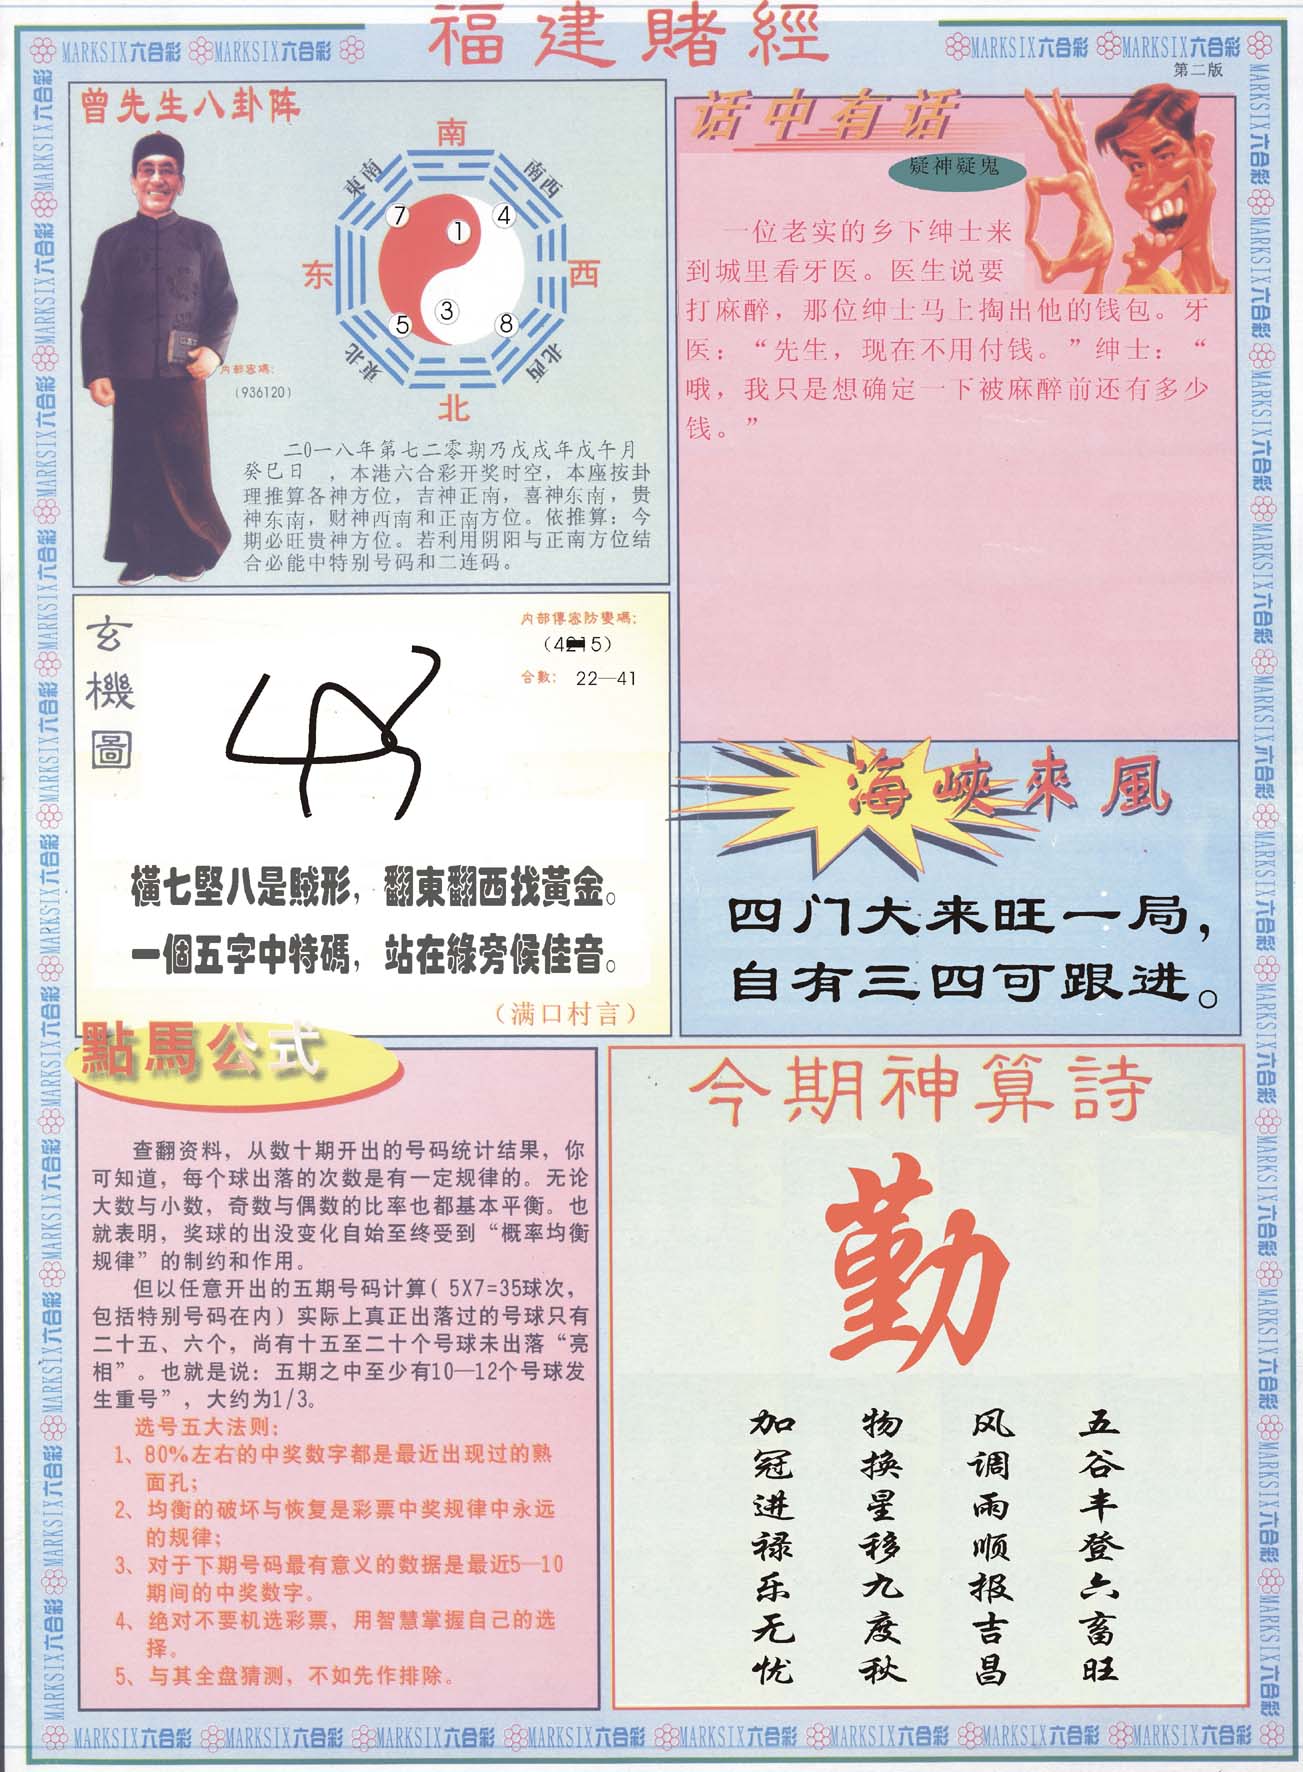 福建賭經
MARKSIX六合彩 MARKSIX六合彩
MARKSIX六合彩 MARKSIX六合彩
第二版
曾先生八卦阵
南
東南
南西
7
1
4
东
西
5
3
8
東北
北西
北
内部密碼:
(936120)
二0一八年第七二零期乃戊戌年戊午月
癸巳日 ，本港六合彩开奖时空，本座按卦
理推算各神方位，吉神正南，喜神东南，贵
神东南，财神西南和正南方位。依推算：今
期必旺贵神方位。若利用阴阳与正南方位结
合必能中特别号码和二连码。
话中有话
疑神疑鬼
一位老实的乡下绅士来
到城里看牙医。医生说要
打麻醉，那位绅士马上掏出他的钱包。牙
医：“先生，现在不用付钱。”绅士：“
哦，我只是想确定一下被麻醉前还有多少
钱。”
玄機圖
内部傳密防變碼:
合數: 22—41
橫七堅八是賊形，翻東翻西找黃金。
一個五字中特碼，站在緣旁候佳音。
（满口村言）
海峽來風
四门大来旺一局，
自有三四可跟进。
點馬公式
查翻资料，从数十期开出的号码统计结果，你
可知道，每个球出落的次数是有一定规律的。无论
大数与小数，奇数与偶数的比率也都基本平衡。也
就表明，奖球的出没变化自始至终受到“概率均衡
规律”的制约和作用。
但以任意开出的五期号码计算( 5X7=35球次，
包括特别号码在内）实际上真正出落过的号球只有
二十五、六个，尚有十五至二十个号球未出落“亮
相”。也就是说：五期之中至少有10—12个号球发
生重号”，大约为1/3。
选号五大法则:
1、80%左右的中奖数字都是最近出现过的熟
面孔;
2、均衡的破坏与恢复是彩票中奖规律中永远
的规律;
3、对于下期号码最有意义的数据是最近5—10
期间的中奖数字。
4、绝对不要机选彩票，用智慧掌握自己的选
择。
5、与其全盘猜测，不如先作排除。
今期神算詩
勤
五谷丰登六畜旺
风调雨顺报吉昌
物换星移九度秋
加冠进禄乐无忧
MARKSIX六合彩 MARKSIX六合彩 MARKSIX六合彩 MARKSIX六合彩 MARKSIX六合彩 MARKSIX六合彩 MARKSIX六合彩 MARKSIX六合彩